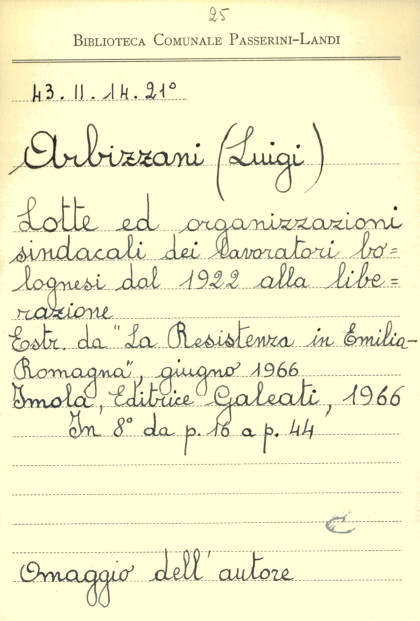 25
BIBLIOTECA COMUNALE PASSERINI-LANDI
43.II.14.21°
Arbizzani (Luigi)
Lotte ed organizzazioni
sindacali dei lavoratori bo=
lognesi dal 1922 alla libe=
razione
Estr. da "La Resistenza in Emilia-
Romagna", giugno 1966
Imola, Editrice Galeati, 1966
In 8° da p. 16 a p. 44
C
Omaggio dell'autore